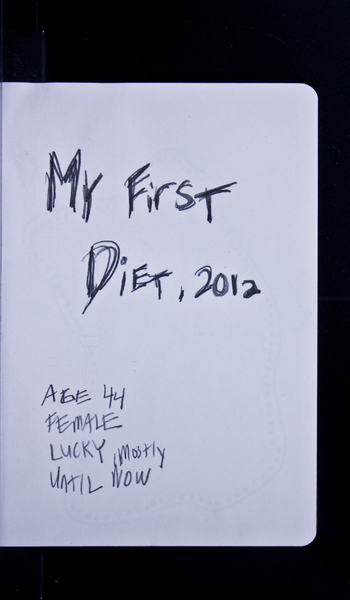 My First
Diet, 2012
AGE 44
FEMALE
LUCKY, mostly
UNTIL NOW